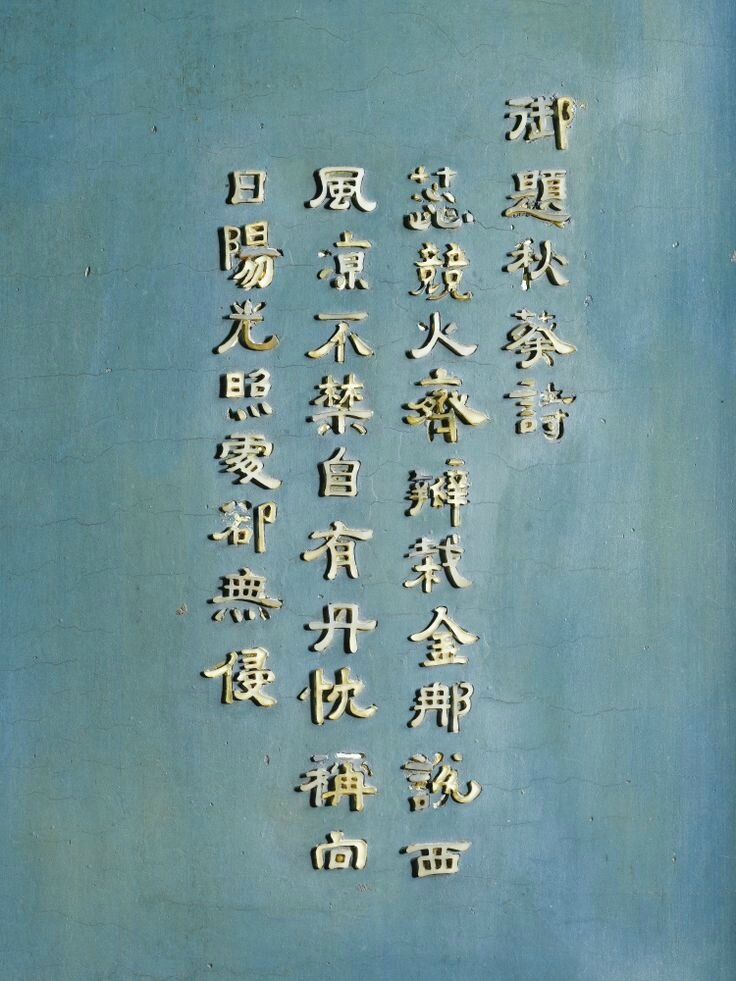 御題秋葵詩
蕊競火齊瓣栽金那說西
風凉不禁自有丹忱稱向
日陽光照處卻無侵